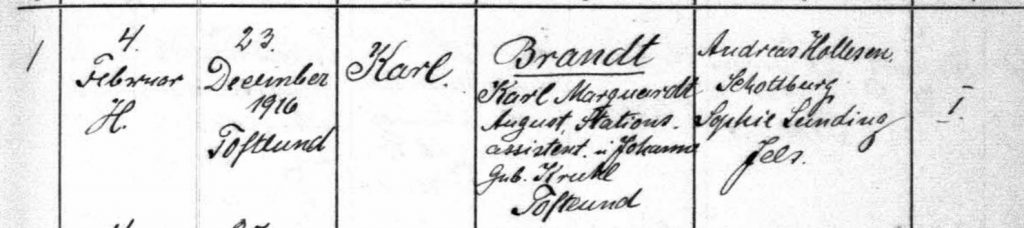 1
4.
Februar
H.
23.
December
1916
Toftlund
Karl.
Brandt
Karl Marquardt
August, Stations-
assistent. u Johanna
Geb. Kruhl
Toftlund
Andreas Hollesen.
Schottburg
Sophie Lunding
Jels.
I.